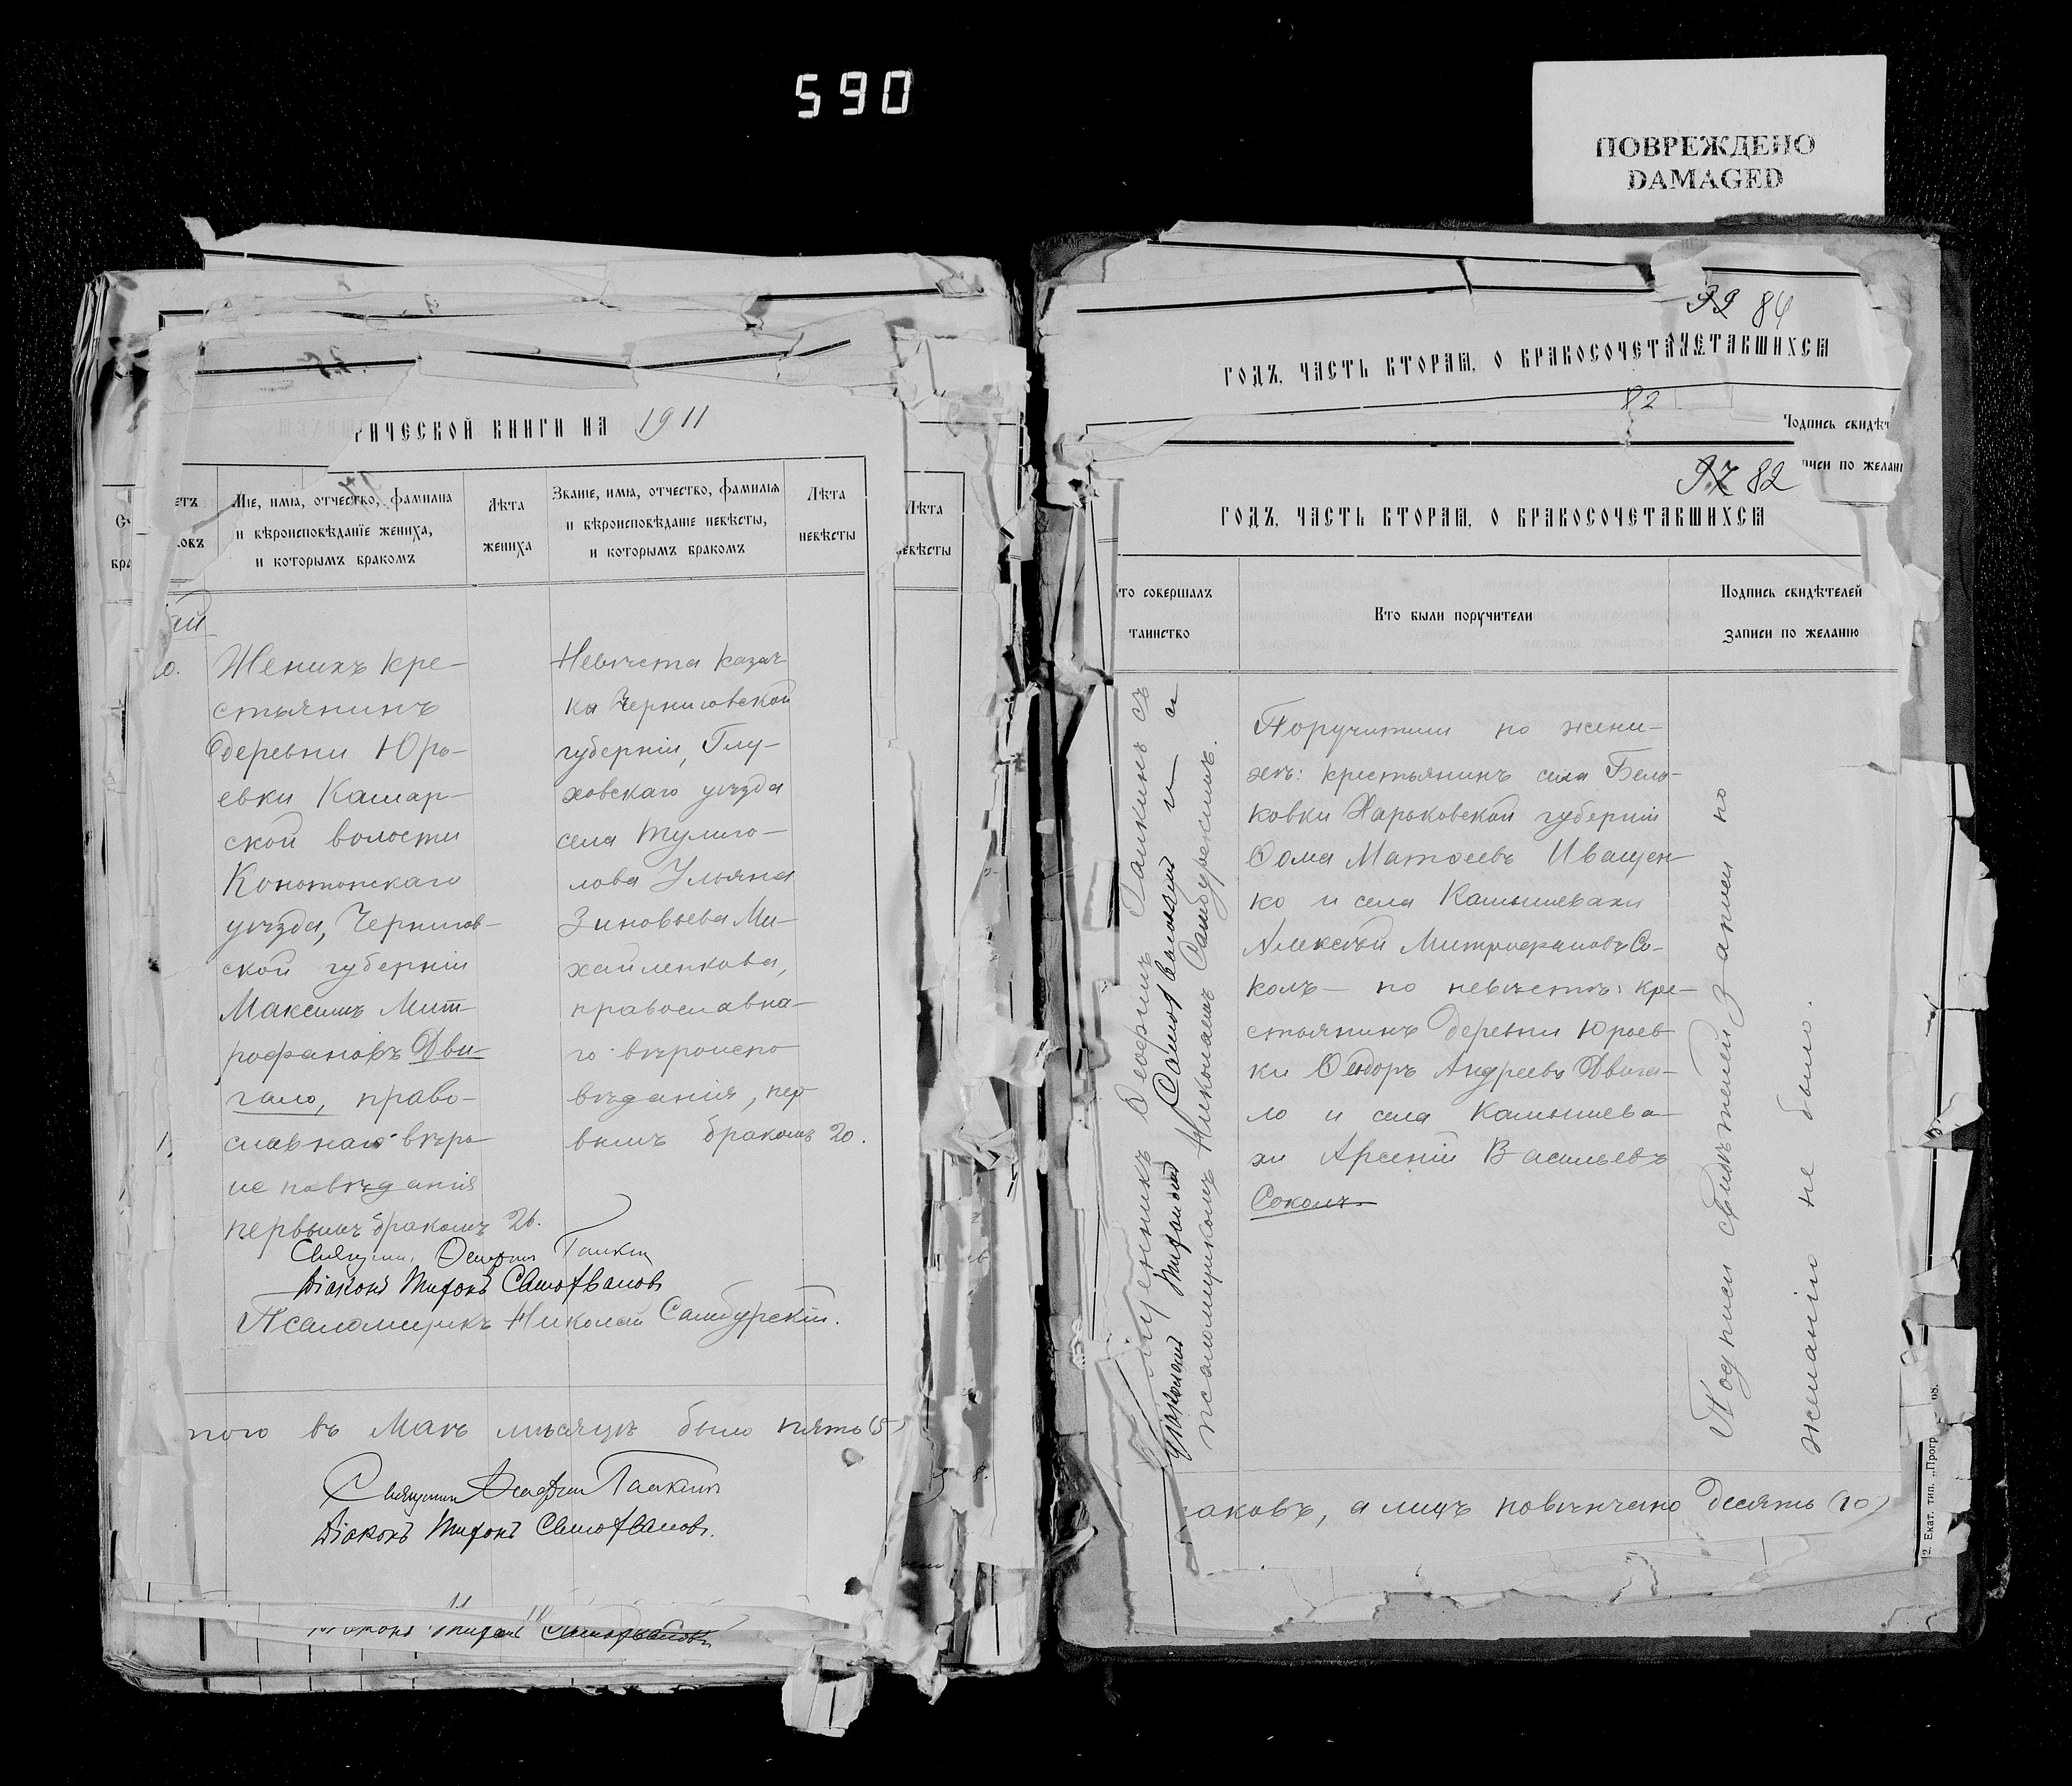 590
ПОВРЕЖДЕНО
DAMAGED
РИЧЕСКОЙ КНИГИ НА 1911
ЕТЪ
НІЕ, ИМЯ, ОТЧЕСТВО, ФАМИЛІЯ
И ВѢРОИСПОВѢДАНІЕ ЖЕНИХА,
И КОТОРЫМЪ БРАКОМЪ
ЛѢТА
ЖЕНИХА
ЗВАНІЕ, ИМЯ, ОТЧЕСТВО, ФАМИЛІЯ
И ВѢРОИСПОВѢДАНІЕ НЕВѢСТЫ,
И КОТОРЫМЪ БРАКОМЪ
ЛѢТА
НЕВѢСТЫ
ЛѢТА
НЕВѢСТЫ
Май
Женихъ кре-
стьянинъ
деревни Юрь-
евки
ской волости
Конотопскаго
уѣзда, Чернигов-
ской губерніи
Максимъ Мит-
рофановъ Дви-
гало, право-
славнаго вѣро
исповѣданія
первымъ бракомъ 26.
Невѣста казач
ка Черниговской
губерніи, Глу-
ховскаго уѣзда
села Тулиго-
лова Ульяна
Зиновьева Ми-
хайленкова,
православна-
го вѣроиспо
вѣданія, пер
вымъ бракомъ 20.
Діаконъ Тихонъ Самохваловъ
Псаломщикъ Николай Самбурскій.
того въ Маѣ мѣсяцѣ было пять (5)
Діаконъ Тихонъ Самохваловъ.
99 84
ГОДЪ, ЧАСТЬ ВТОРАЯ, О БРАКОСОЧЕТАВШИХСЯ
82
Подпись свидѣт
писи по желані
97 82
ГОДЪ, ЧАСТЬ ВТОРАЯ, О БРАКОСОЧЕТАВШИХСЯ
то совершалъ
таинство
Кто были поручители
Подпись свидѣтелей
записи по желанію
Священникъ съ
діакономъ Тихономъ Самохваловымъ и
псаломщикомъ Николаемъ Самбурскимъ.
Поручители по жени-
хѣ: крестьянинъ села Бело-
ковки Харьковской губерніи
Ѳома Матѳеевъ Иващен-
ко и села Камышевахи
Алексѣй Митрофановъ Со-
колъ — по невѣстѣ: кре-
стьянинъ деревни Юрьев
ки Ѳеодоръ Андреевъ Двига-
ло и села Камышева-
хи Арсеній Васильевъ
Соколъ.
Подписи свидѣтелей записи по
желанію не было.
раковъ, а лицъ повѣнчано десять (10)
2. Екат. тип. „Прогр